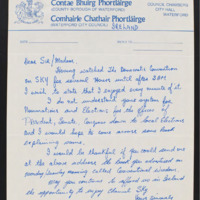 Contae Bhuirg Phortláirge
COUNTY BOROUGH OF WATERFORD
Comhairle Chathair Phortláirge
WATERFORD CITY COUNCIL
IRELAND
CITY HALL
WATERFORD
DATE
Dear Sir/Madam
Having watched the Democratic Convention
on SKY for several hours until after 3am
I wish to state that I enjoyed every minute of
it. I do not understand your system for
Nominations and Elections for the Offices of
President, Senate, Congress down to local Elections
and I would hope to come across some book
explaining same.
I would be thankful if you could send me
at the above address the book you advertised on
Monday/Tuesday morning called Conventional Wisdom
the opportunity to enjoy Channel Sky
Yours Sincerely